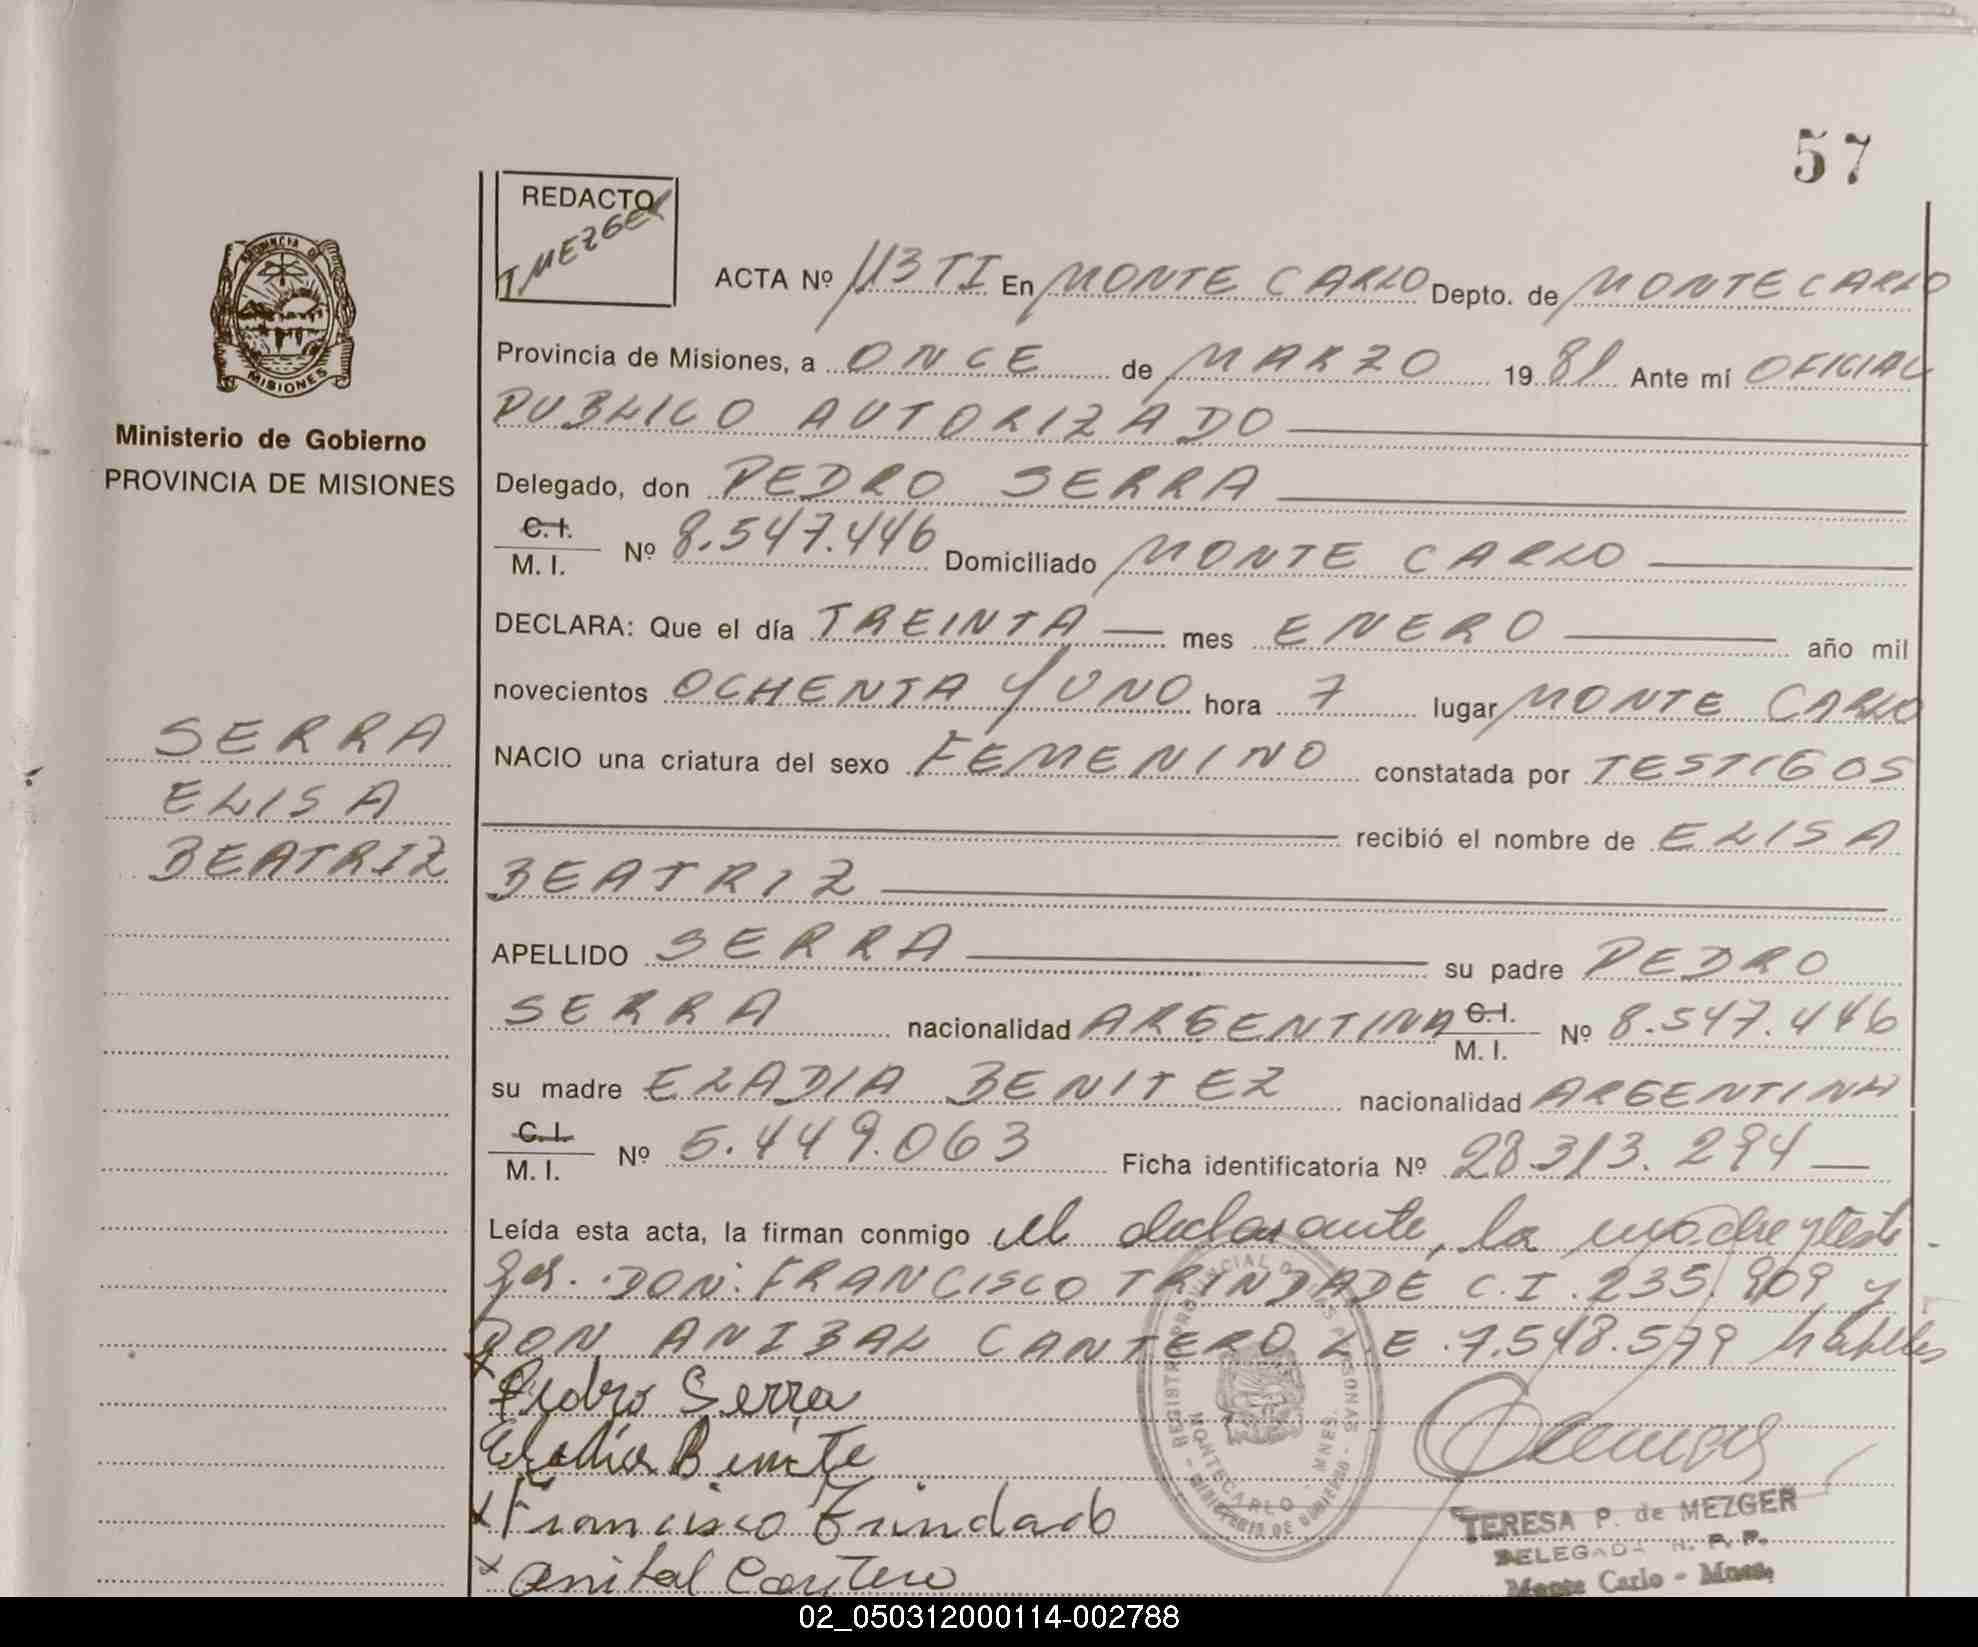 57
REDACTO
T MEZGER
PROVINCIA DE
MISIONES
Ministerio de Gobierno
PROVINCIA DE MISIONES
ACTA Nº 113 TI En MONTE CARLO Depto. de MONTECARLO
Provincia de Misiones, a ONCE de MARZO 1981 Ante mí OFICIAL
PUBLICO AUTORIZADO
Delegado, don PEDRO SERRA
C.I.
M. I. Nº 8.547.446 Domiciliado MONTE CARLO
DECLARA: Que el día TREINTA mes ENERO año mil
novecientos OCHENTA Y UNO hora 7 lugar MONTE CARLO
NACIO una criatura del sexo FEMENINO constatada por TESTIGOS
recibió el nombre de ELISA
BEATRIZ
SERRA
ELISA
BEATRIZ
APELLIDO SERRA su padre PEDRO
SERRA nacionalidad ARGENTINA C.I. M. I. Nº 8.547.446
su madre ELADIA BENITEZ nacionalidad ARGENTINA
C.I.
M. I. Nº 5.449.063 Ficha identificatoria Nº 28.313.294
Leída esta acta, la firman conmigo el declarante, la madre y testi-
gos. DON: FRANCISCO TRINDADE C.I. 235.909 y
DON ANIBAL CANTERO L.E. 7.548.579 habiles
x Pedro Serra
Eladia Benite
x Francisco Trindado
x Anibal Cantero
REGISTRO PROVINCIAL DE LAS PERSONAS
MONTECARLO - MNES.
MINISTERIO DE GOBIERNO
TERESA P. de MEZGER
DELEGADA R. P. P.
Monte Carlo - Mnes.
02_050312000114-002788